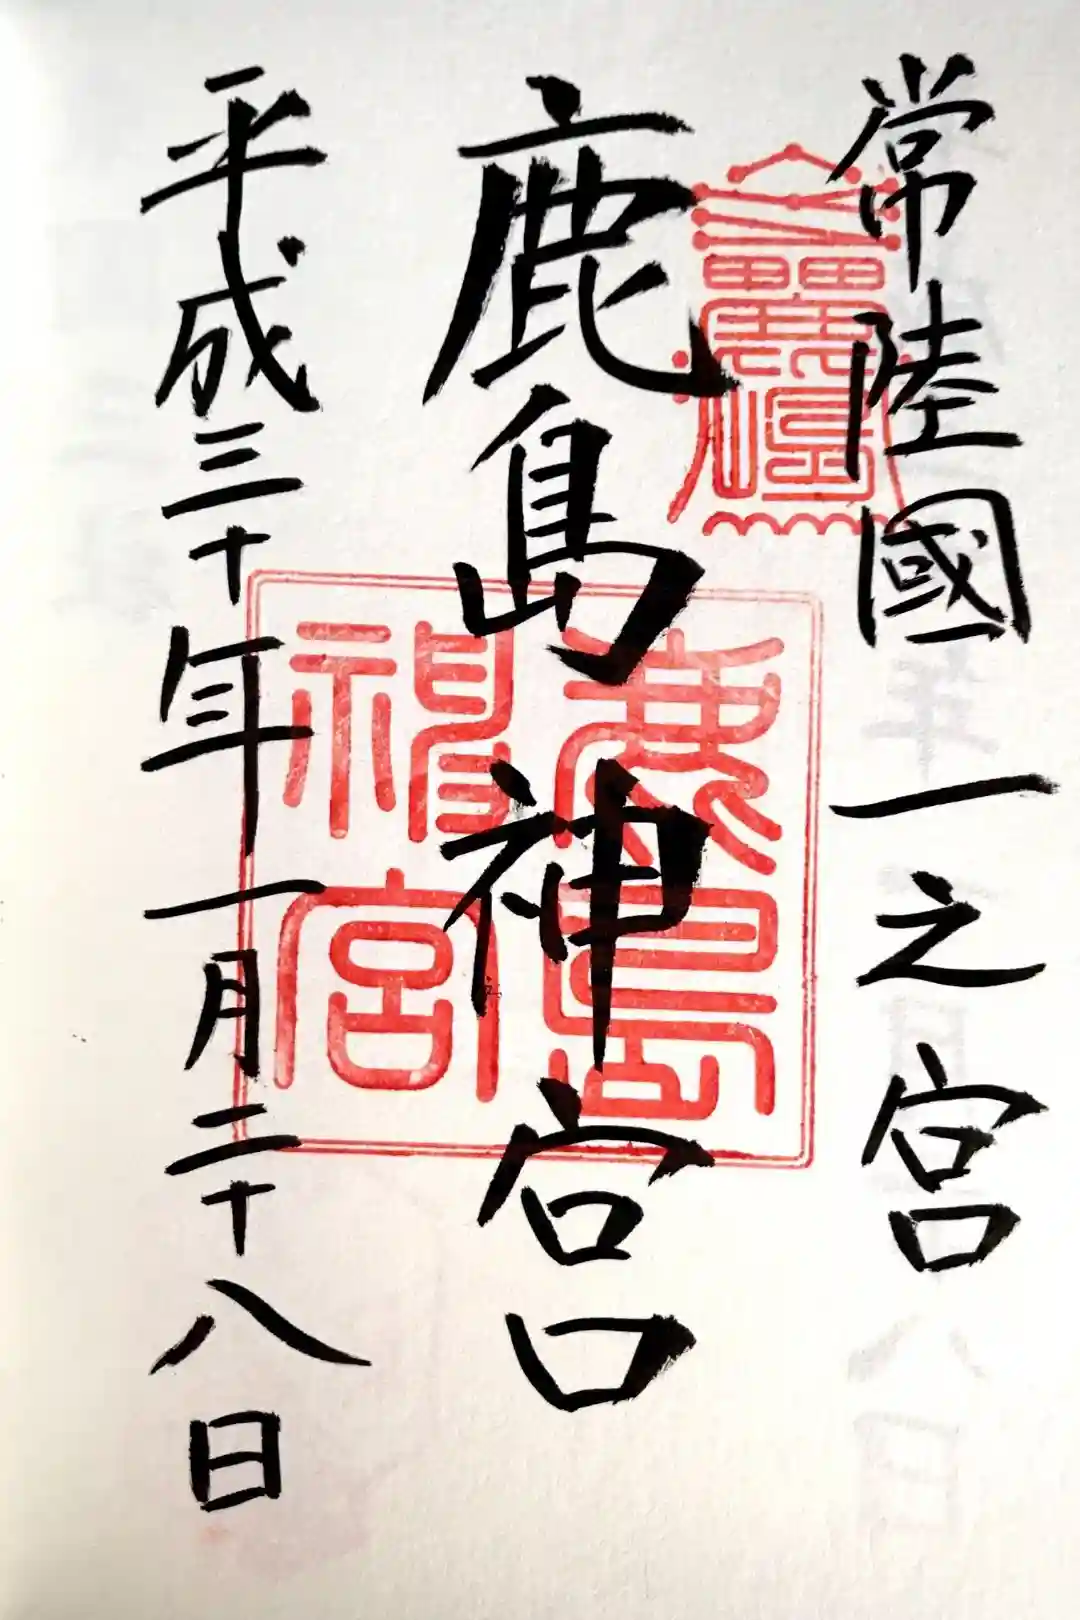 常陸國一之宮
鹿島神宮
平成三十年一月二十八日
鹿島
神宮